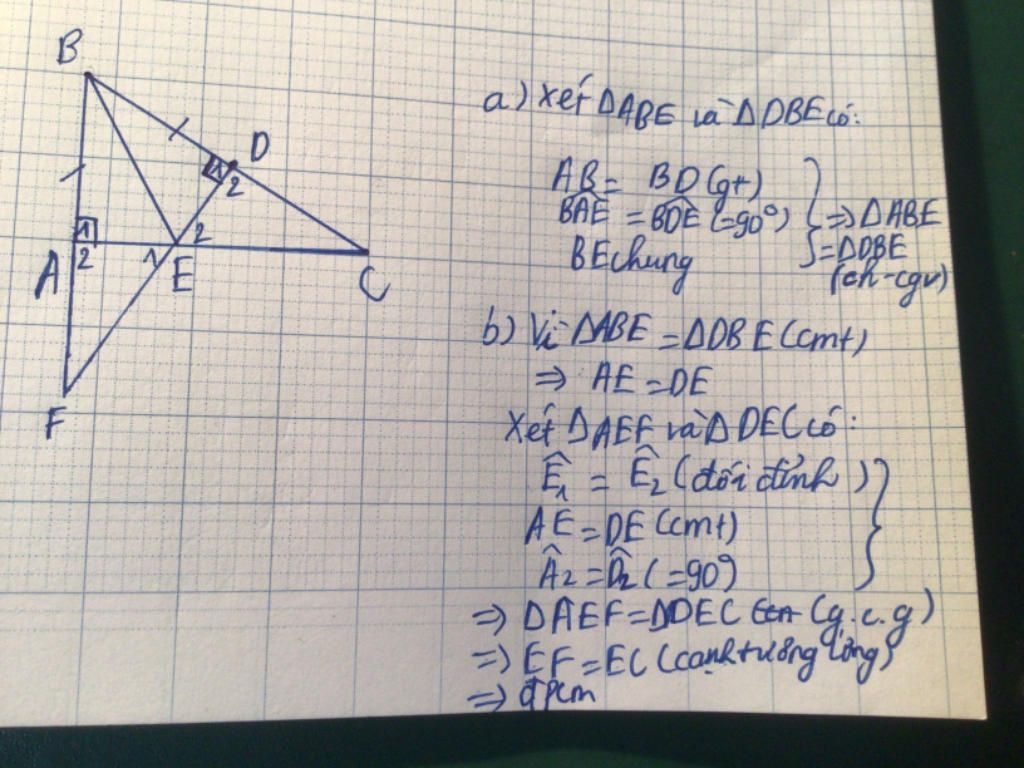 B
D
1
2
1
2
A
1
2
E
C
F
a) Xét ΔABE và ΔDBE có:
AB = BD (gt)
BAE^ = BDE^ (=90°)
BE chung
} => ΔABE
= ΔDBE
(ch-cgv)
b) Vì ΔABE = ΔDBE (cmt)
=> AE = DE
Xét ΔAEF và ΔDEC có:
Ê1 = Ê2 (đối đỉnh)
AE = DE (cmt)
Â2 = D̂2 (=90°)
}
=> ΔAEF = ΔDEC (g.c.g)
=> EF = EC (cạnh tương ứng)
=> đpcm